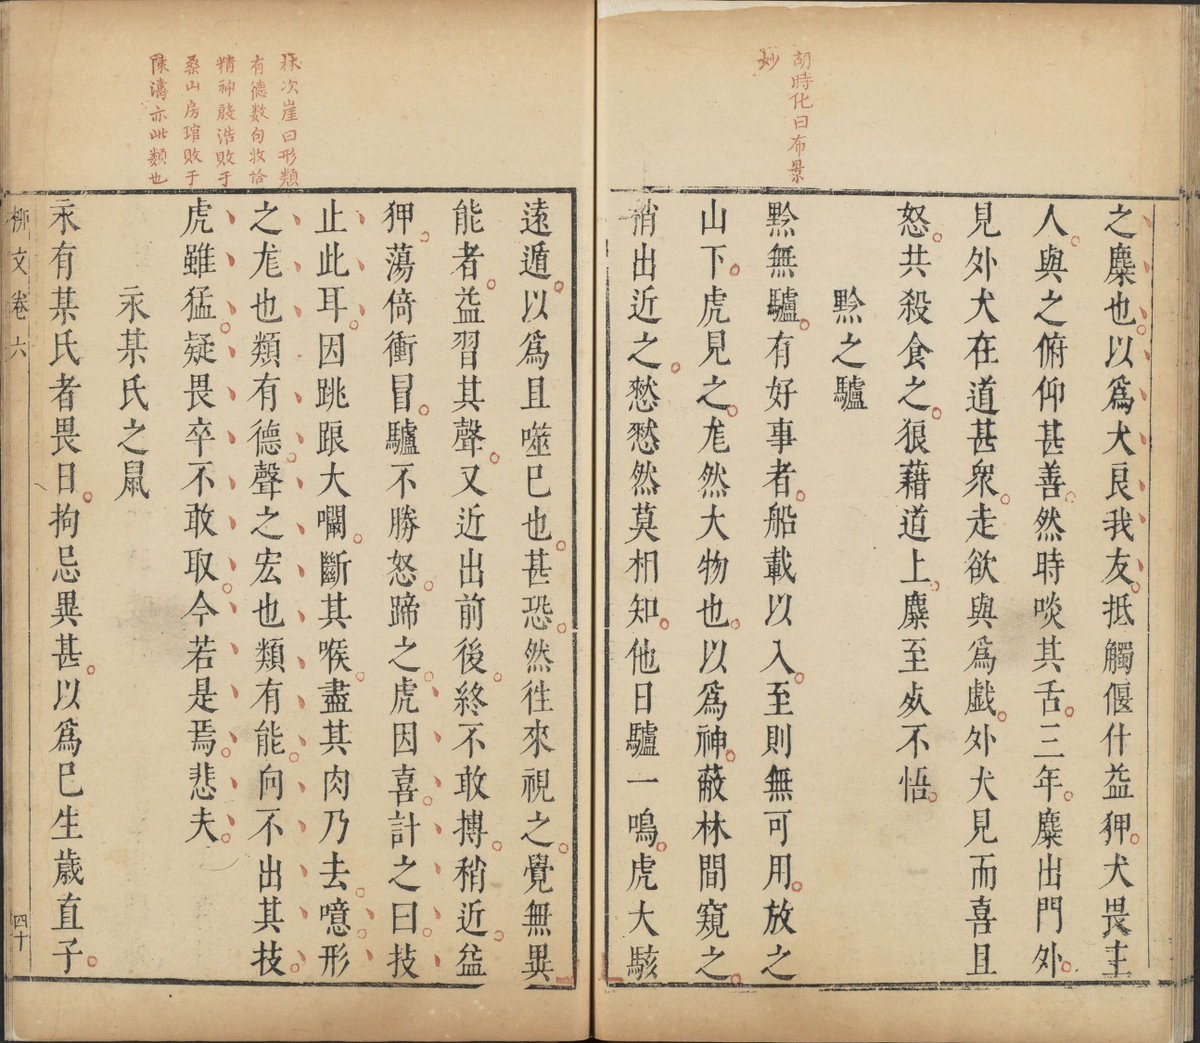 胡時化曰布景
妙
之麋也以爲犬良我友抵觸偃什益狎犬畏主
人與之俯仰甚善然時啖其舌三年麋出門外
見外犬在道甚衆走欲與爲戲外犬見而喜且
怒共殺食之狼藉道上麋至死不悟
黔之驢
黔無驢有好事者船載以入至則無可用放之
山下虎見之尨然大物也以爲神蔽林間窺之
稍出近之憖憖然莫相知他日驢一鳴虎大駭
林次崖曰形類
有德数句收恰
精神殷浩敗于
桑山房琯敗于
陳濤亦此類也
遠遁以爲且噬已也甚恐然徃來視之覺無異
能者益習其聲又近出前後終不敢搏稍近益
狎蕩倚衝冒驢不勝怒蹄之虎因喜計之曰技
止此耳因跳踉大㘚斷其喉盡其肉乃去噫形
之尨也類有德聲之宏也類有能向不出其技
虎雖猛疑畏卒不敢取今若是焉悲夫
永某氏之鼠
永有某氏者畏日拘忌異甚以爲已生歲直子
柳文卷六
四十